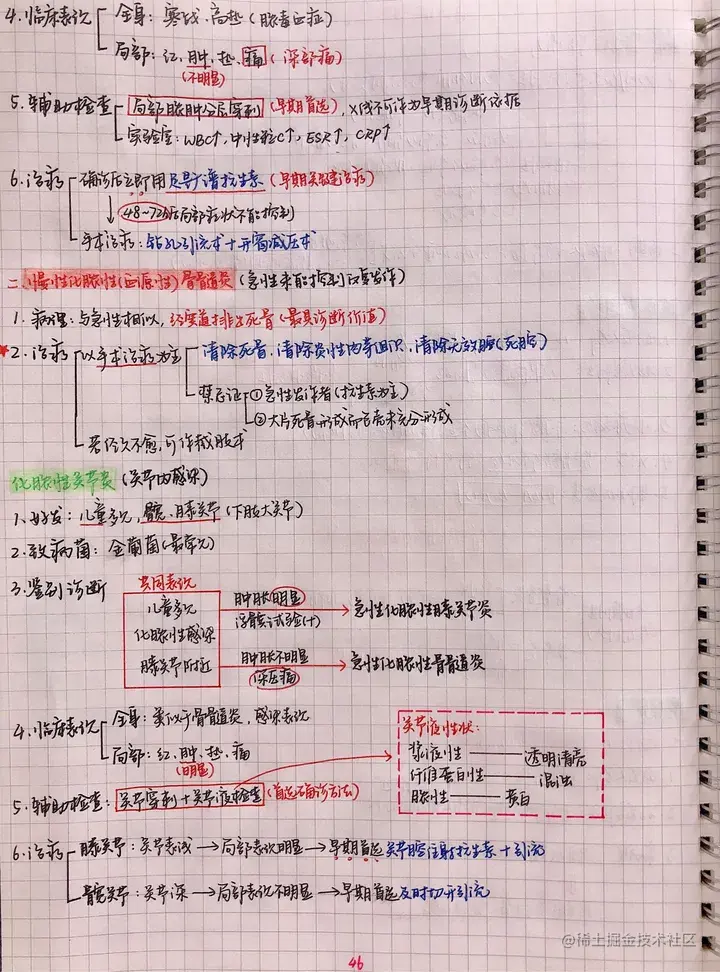 4.临床表现 全身：寒战、高热（脓毒血症）
局部：红、肿、热、痛（深部痛）
（不明显）
5.辅助检查 局部脓肿分层穿刺（早期首选），X线不可作为早期诊断依据
实验室：WBC↑，中性粒C↑，ESR↑，CRP↑
6.治疗 确诊后立即用足量广谱抗生素（早期关键治疗）
↓48~72h后局部症状不能控制
手术治疗：钻孔引流术＋开窗减压术
二.慢性化脓性（血源性）骨髓炎（急性未能控制反复发作）
1.病理：与急性相似，经窦道排出死骨（最具诊断价值）
*2.治疗 以手术治疗为主 清除死骨、清除炎性肉芽组织、清除无效腔（死腔）
禁忌证 ①急性发作者（抗生素为主）
②大片死骨形成而包壳未充分形成
若经久不愈，可作截肢术
化脓性关节炎（关节内感染）
1.好发：儿童多见，髋、膝关节（下肢大关节）
2.致病菌：金葡菌（最常见）
3.鉴别诊断 共同表现
儿童多见 肿胀明显
化脓性感染 浮髌试验(+) → 急性化脓性膝关节炎
膝关节附近 肿胀不明显 → 急性化脓性骨髓炎
深压痛
4.临床表现 全身：类似于骨髓炎，感染表现
局部：红、肿、热、痛
（明显）
关节液性状：
浆液性——透明清亮
纤维蛋白性——混浊
脓性——黄白
5.辅助检查：关节穿刺＋关节液检查（首选确诊方法）
6.治疗 膝关节：关节表浅→局部表现明显→早期首选关节腔注射抗生素＋引流
髋关节：关节深→局部表现不明显→早期首选及时切开引流
46
@稀土掘金技术社区